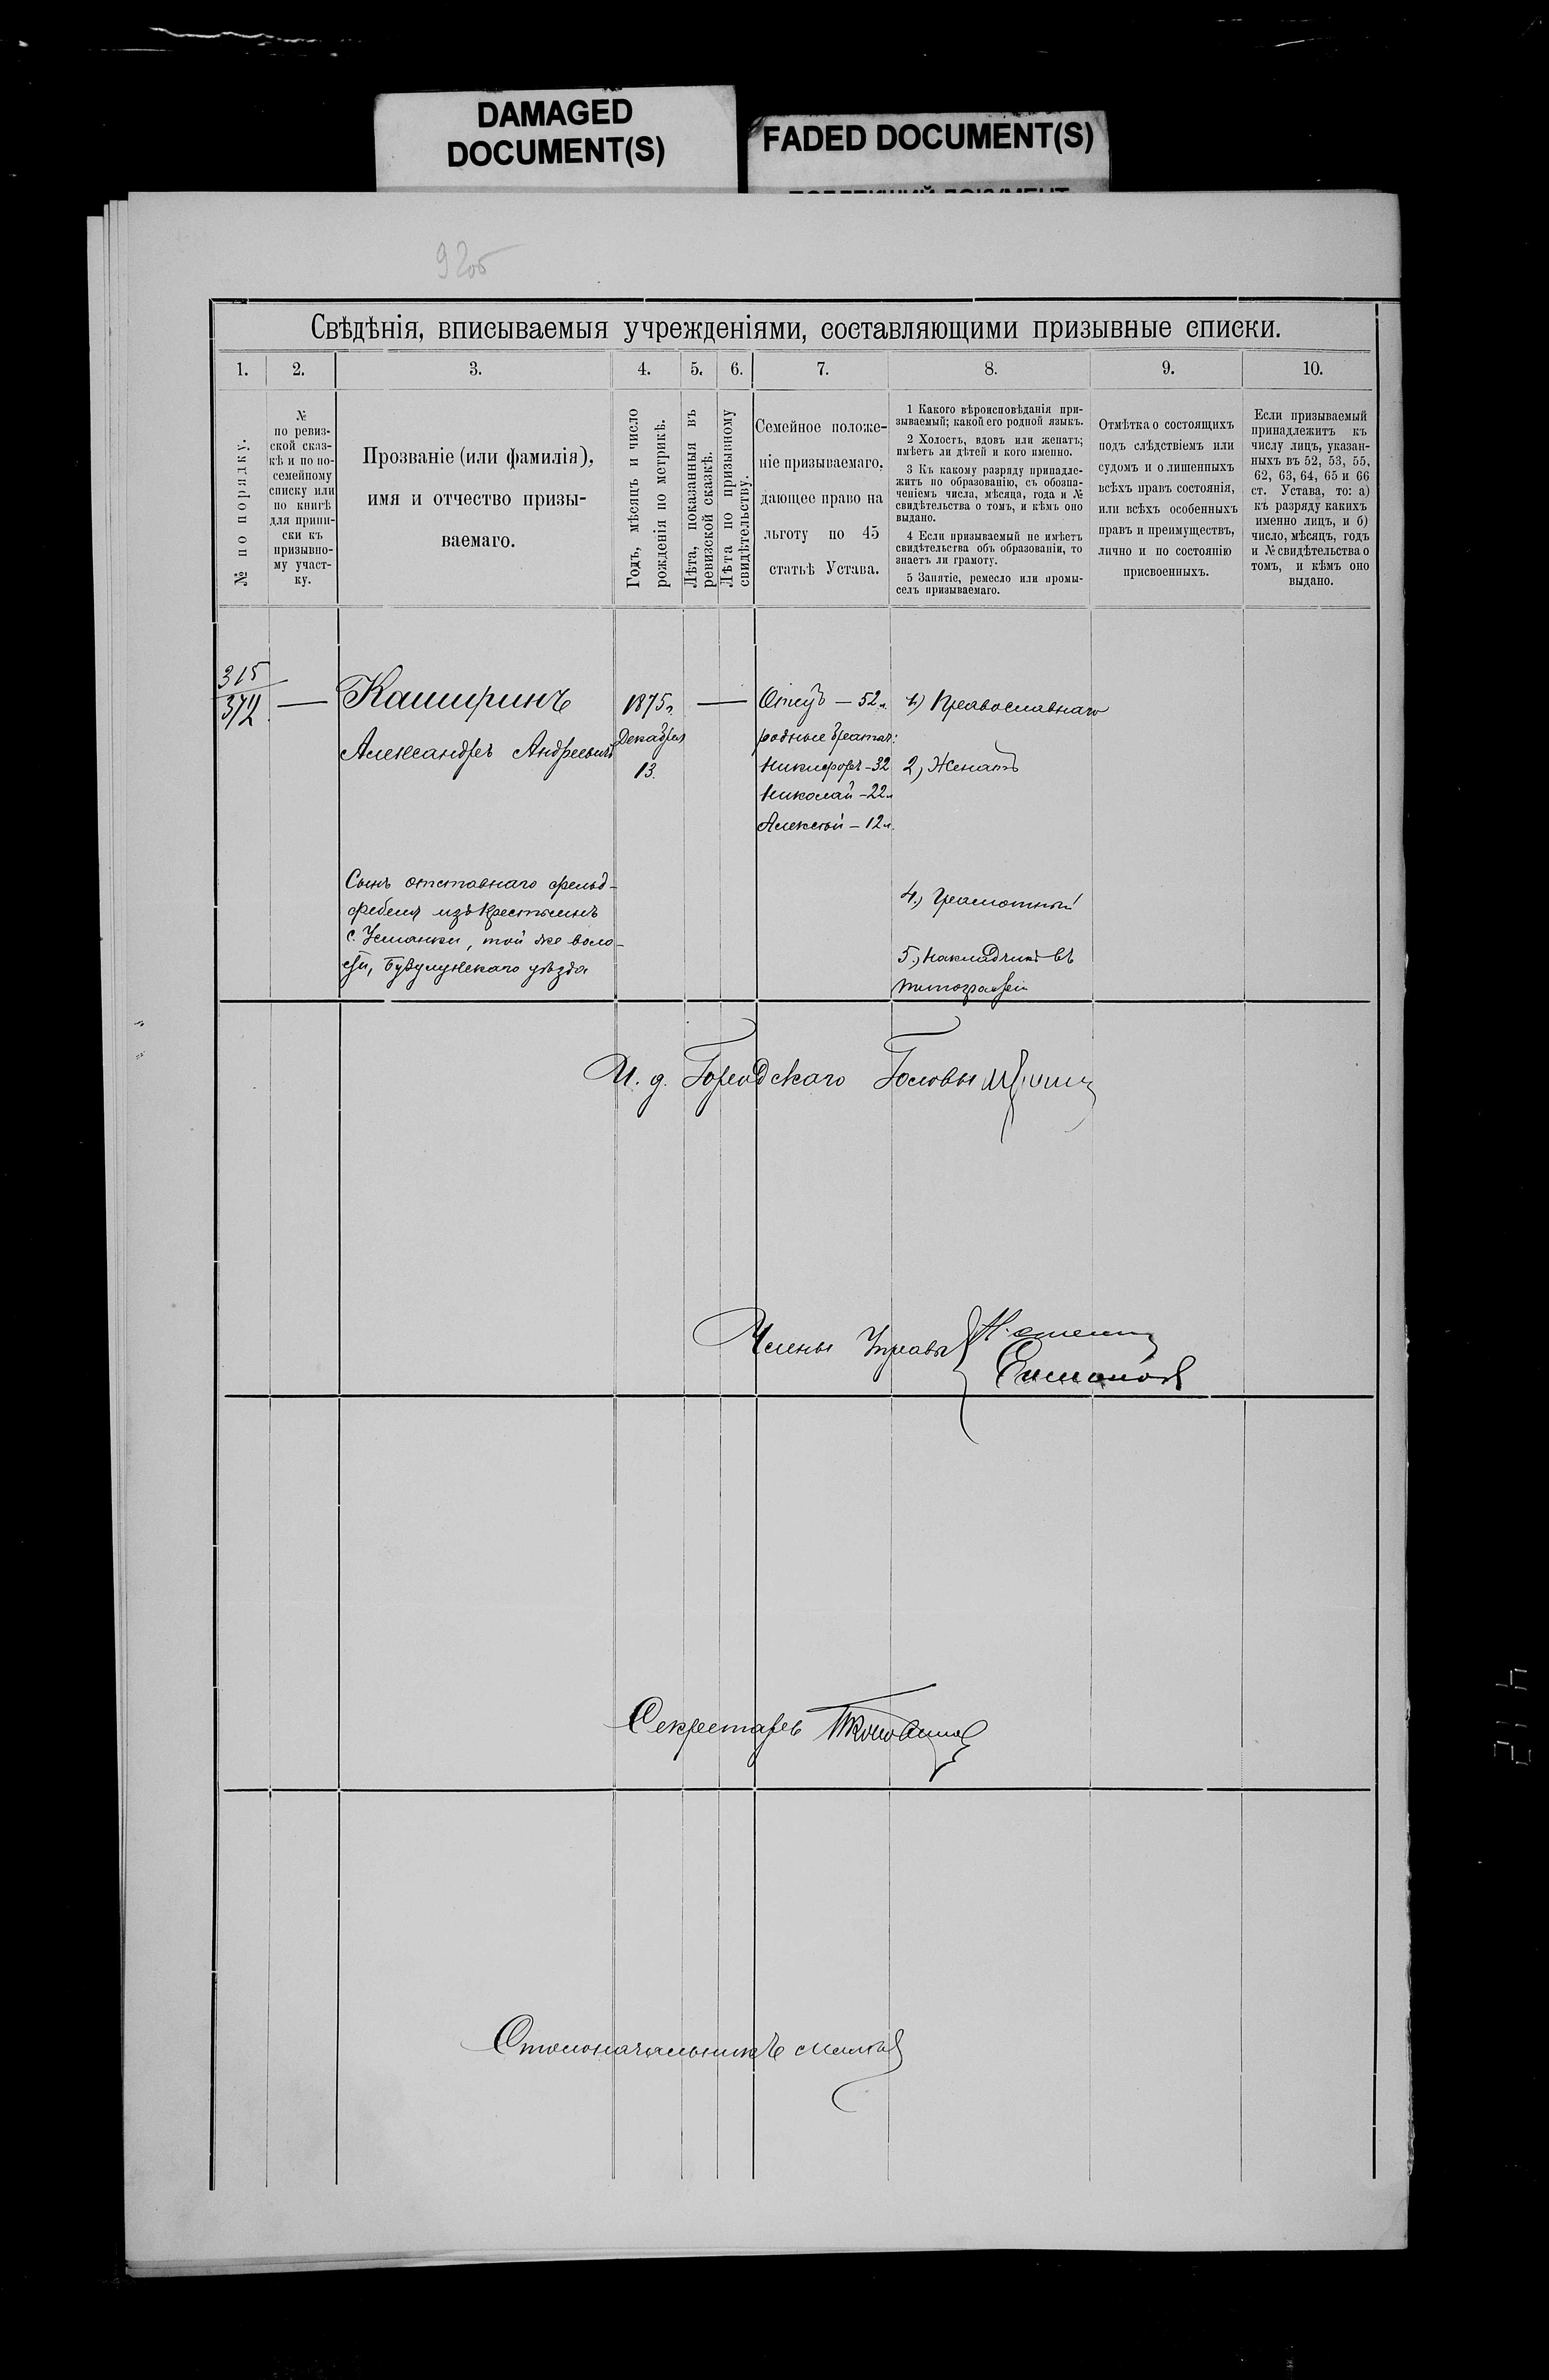 DAMAGED
DOCUMENT(S)
FADED DOCUMENT(S)
92об
Свѣдѣнія, вписываемыя учрежденіями, составляющими призывные списки.
1. 2. 3. 4. 5. 6. 7. 8. 9. 10.
№ по порядку.
№
по ревиз-
ской сказ-
кѣ и по по-
семейному
списку или
по книгѣ
для припи-
ски къ
призывно-
му участ-
ку.
Прозваніе (или фамилія),
имя и отчество призы-
ваемаго.
Годъ, мѣсяцъ и число
рожденія по метрикѣ.
Лѣта, показанныя въ
ревизской сказкѣ.
Лѣта по призывному
свидѣтельству.
Семейное положе-
ніе призываемаго,
дающее право на
льготу по 45
статьѣ Устава.
1 Какого вѣроисповѣданія при-
зываемый; какой его родной языкъ.
2 Холостъ, вдовъ или женатъ;
имѣетъ ли дѣтей и кого именно.
3 Къ какому разряду принадле-
житъ по образованію, съ обозна-
ченіемъ числа, мѣсяца, года и №
свидѣтельства о томъ, и кѣмъ оно
выдано.
4 Если призываемый не имѣетъ
свидѣтельства объ образованіи, то
знаетъ ли грамоту.
5 Занятіе, ремесло или промы-
селъ призываемаго.
Отмѣтка о состоящихъ
подъ слѣдствіемъ или
судомъ и о лишенныхъ
всѣхъ правъ состоянія,
или всѣхъ особенныхъ
правъ и преимуществъ,
лично и по состоянію
присвоенныхъ.
Если призываемый
принадлежитъ къ
числу лицъ, указан-
ныхъ въ 52, 53, 55,
62, 63, 64, 65 и 66
ст. Устава, то: а)
къ разряду какихъ
именно лицъ, и б)
число, мѣсяцъ, годъ
и № свидѣтельства о
томъ, и кѣмъ оно
выдано.
315
372
—
Каширинъ
Александръ Андреевичъ
Сынъ отставнаго фельд-
фебеля изъ крестьянъ
с. Усманки, той же воло-
сти, Бузулукскаго уѣзда
1875г.
Декабря
13.
—
Отецъ — 52 л.
родные братья:
Никифоръ – 32
Николай – 22 л
Алексѣй – 12 л.
1) Православнаго
2) Женатъ
4.) Грамотный
5.) Накладчикъ въ
типографіи
И. д. Городскаго Головы
Члены Управы
Секретарь
Столоначальникъ
412